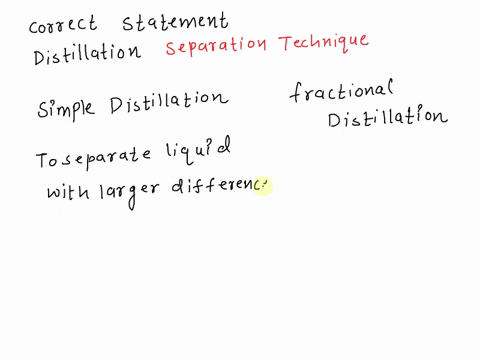 correct statement
Distillation Separation Technique
Simple Distillation
fractional
Distillation
To separate liquid
with larger differenc